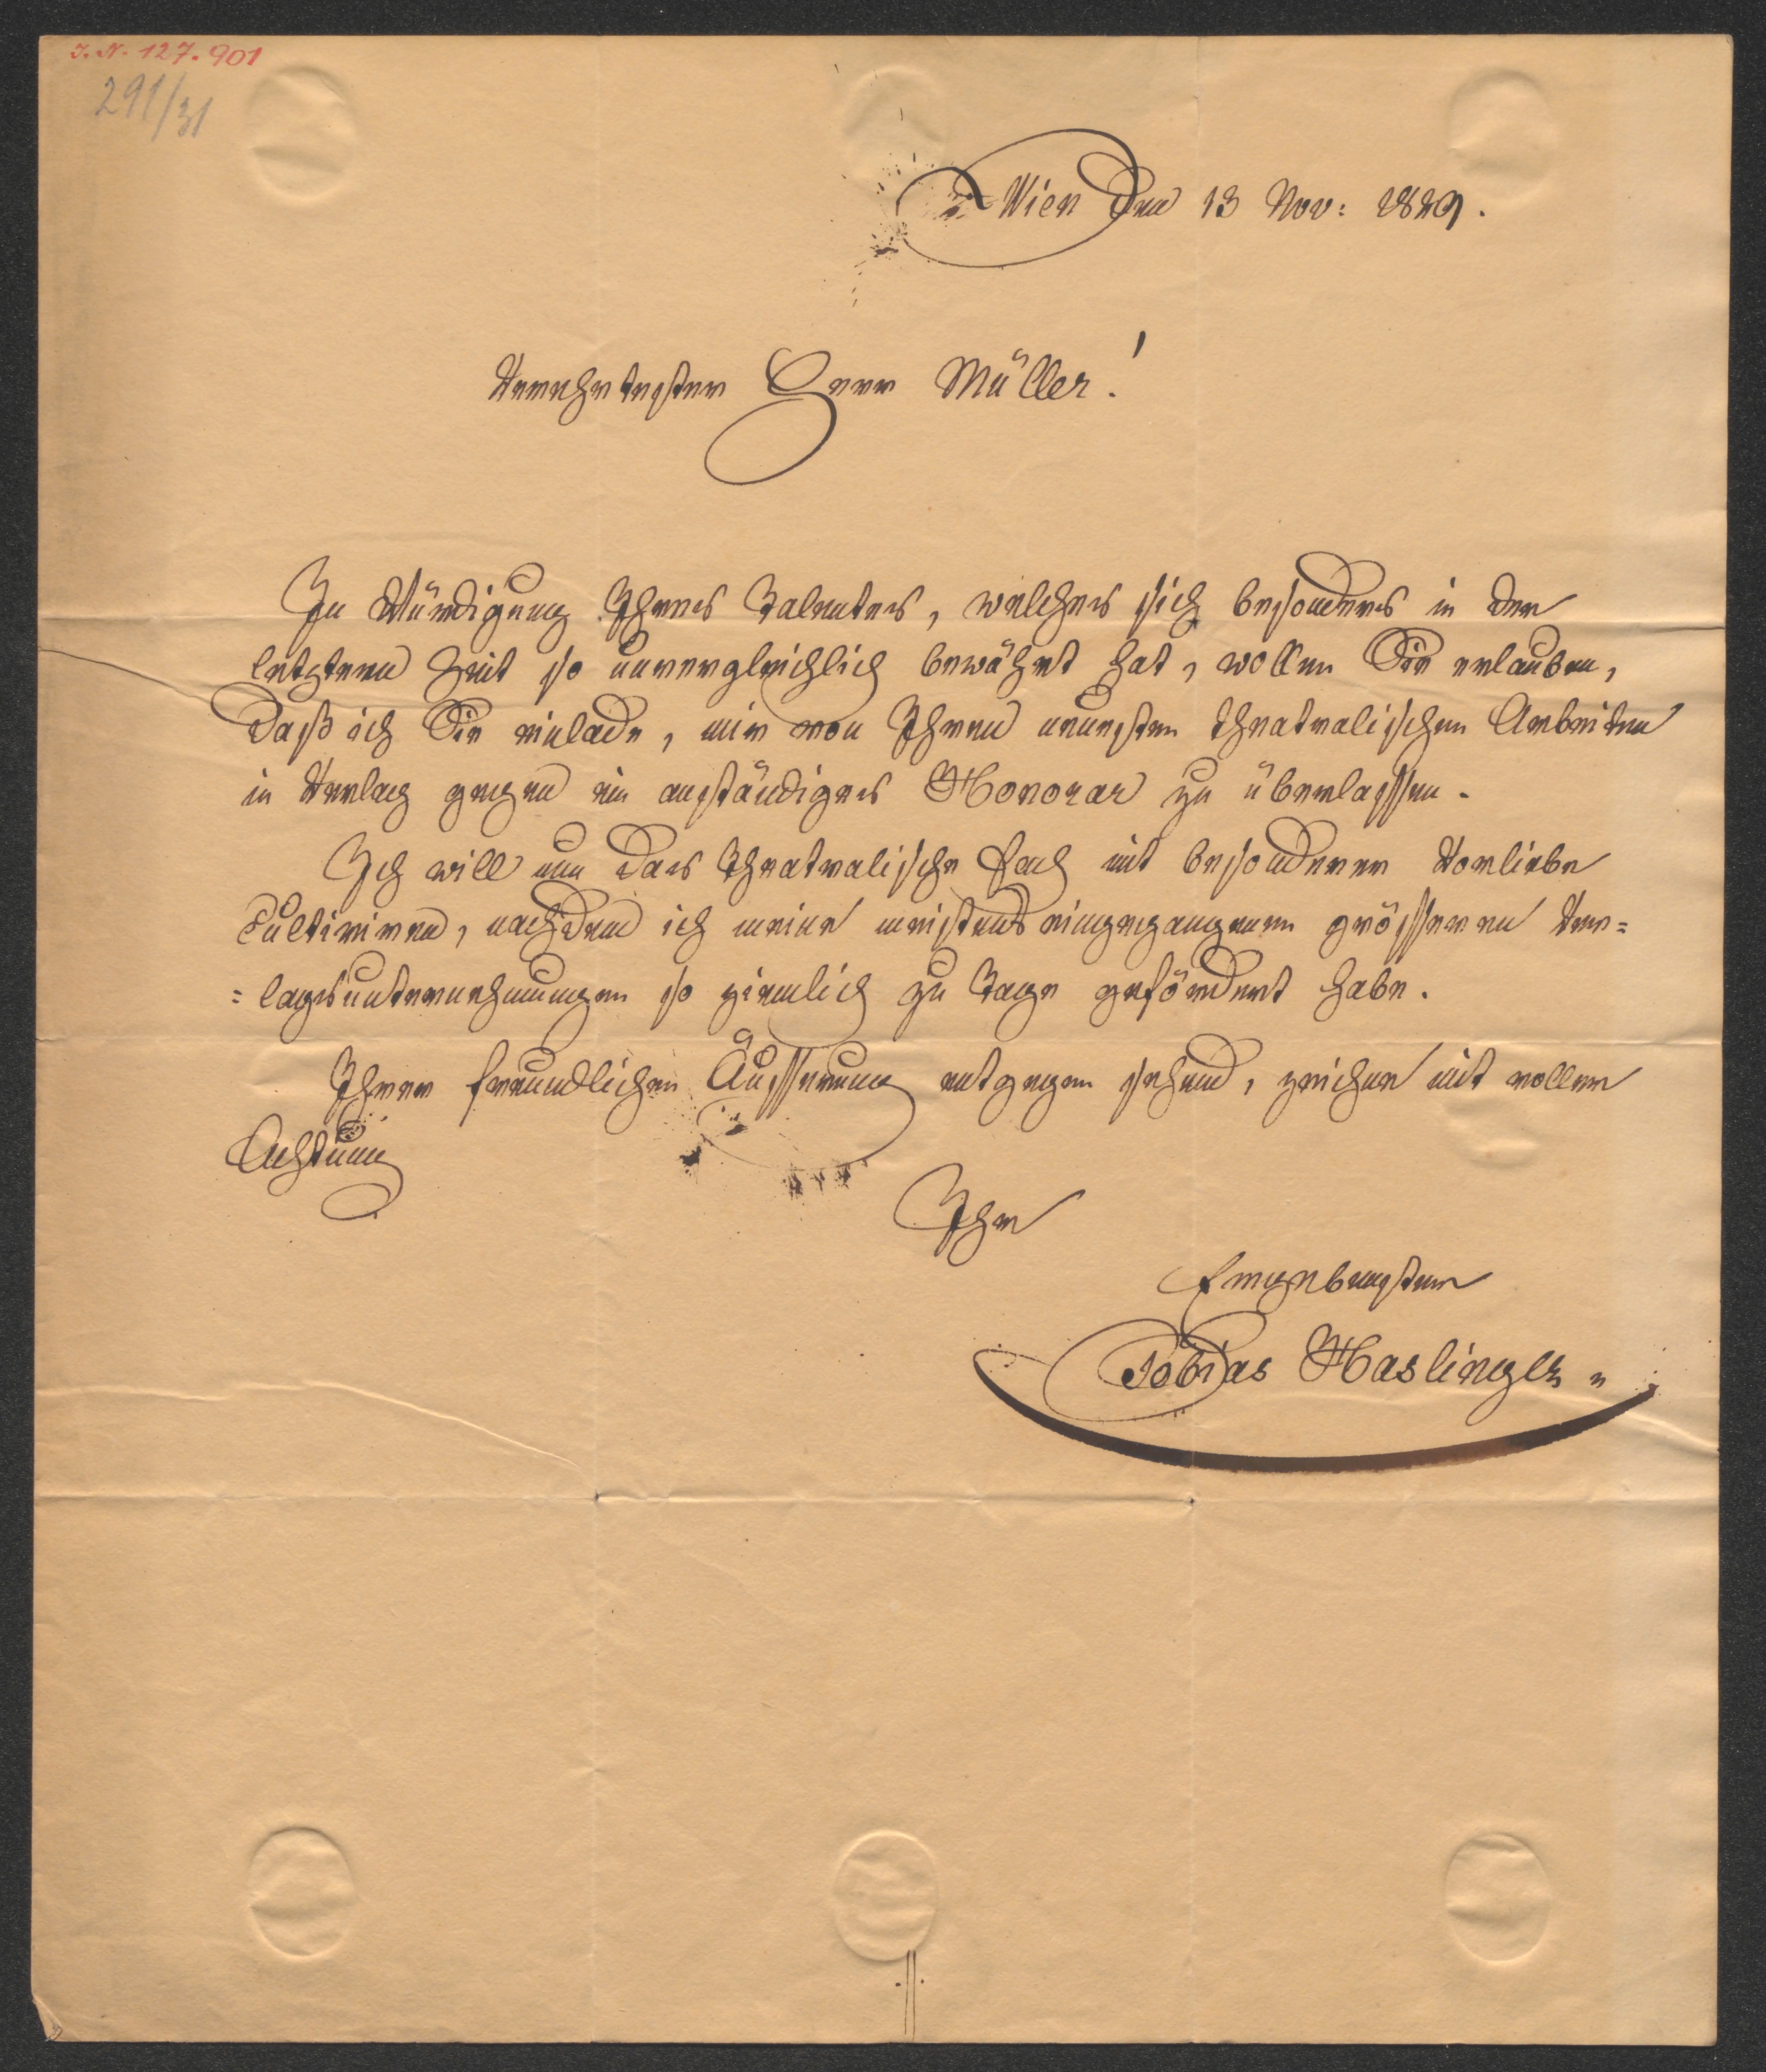 I. N. 127.901
291/31
Wien den 13 Nov: 1829.
Verehrtester Herr Müller!
In Würdigung Ihres Talentes, welches sich besonders in der
letztern Zeit so unvergleichlich bewährt hat, wollen Sie erlauben,
daß ich Sie einlade, mir von Ihren neuesten theatralischen Arbeiten
in Verlag gegen ein anständiges Honorar zu überlassen.
Ich will nun das theatralische Fach mit besonderer Vorliebe
cultiviren, nachdem ich meine meistens eingegangenen grösseren Ver=
=lagsunternehmungen so ziemlich zu Tage gefördert habe.
Ihrer freundlichen Äusserung entgegen sehend, zeichne mit voller
Achtung
Ihr
Ergebenster
Tobias Haslinger